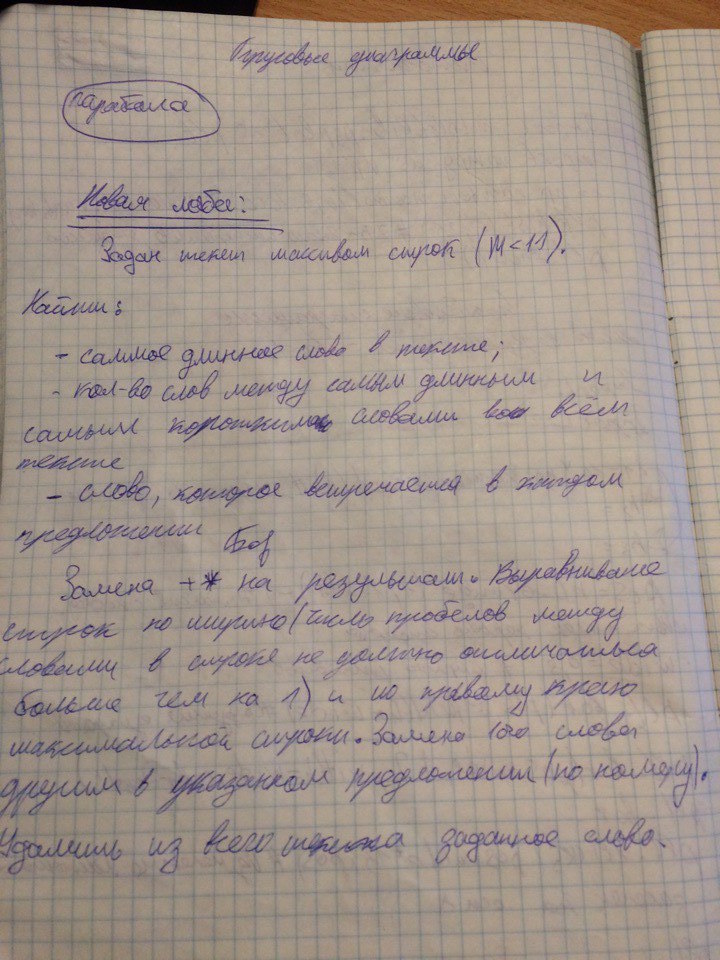 Круговые диаграммы
парабола
Новая лаба:
Задан текст массивом строк (M<11).
Найти:
- самое длинное слово в тексте;
- кол-во слов между самым длинным и
самым коротким словами во всём
тексте
- слово, которое встречается в каждом
предложении
Замена + * на результат. Выравнивание
строк по ширине (число пробелов между
словами в строке не должно отличаться
больше чем на 1) и по правому краю
максимальной строки. Замена 1ого слова
другим в указанном предложении (по номеру).
Удалить из всего текста заданное слово.